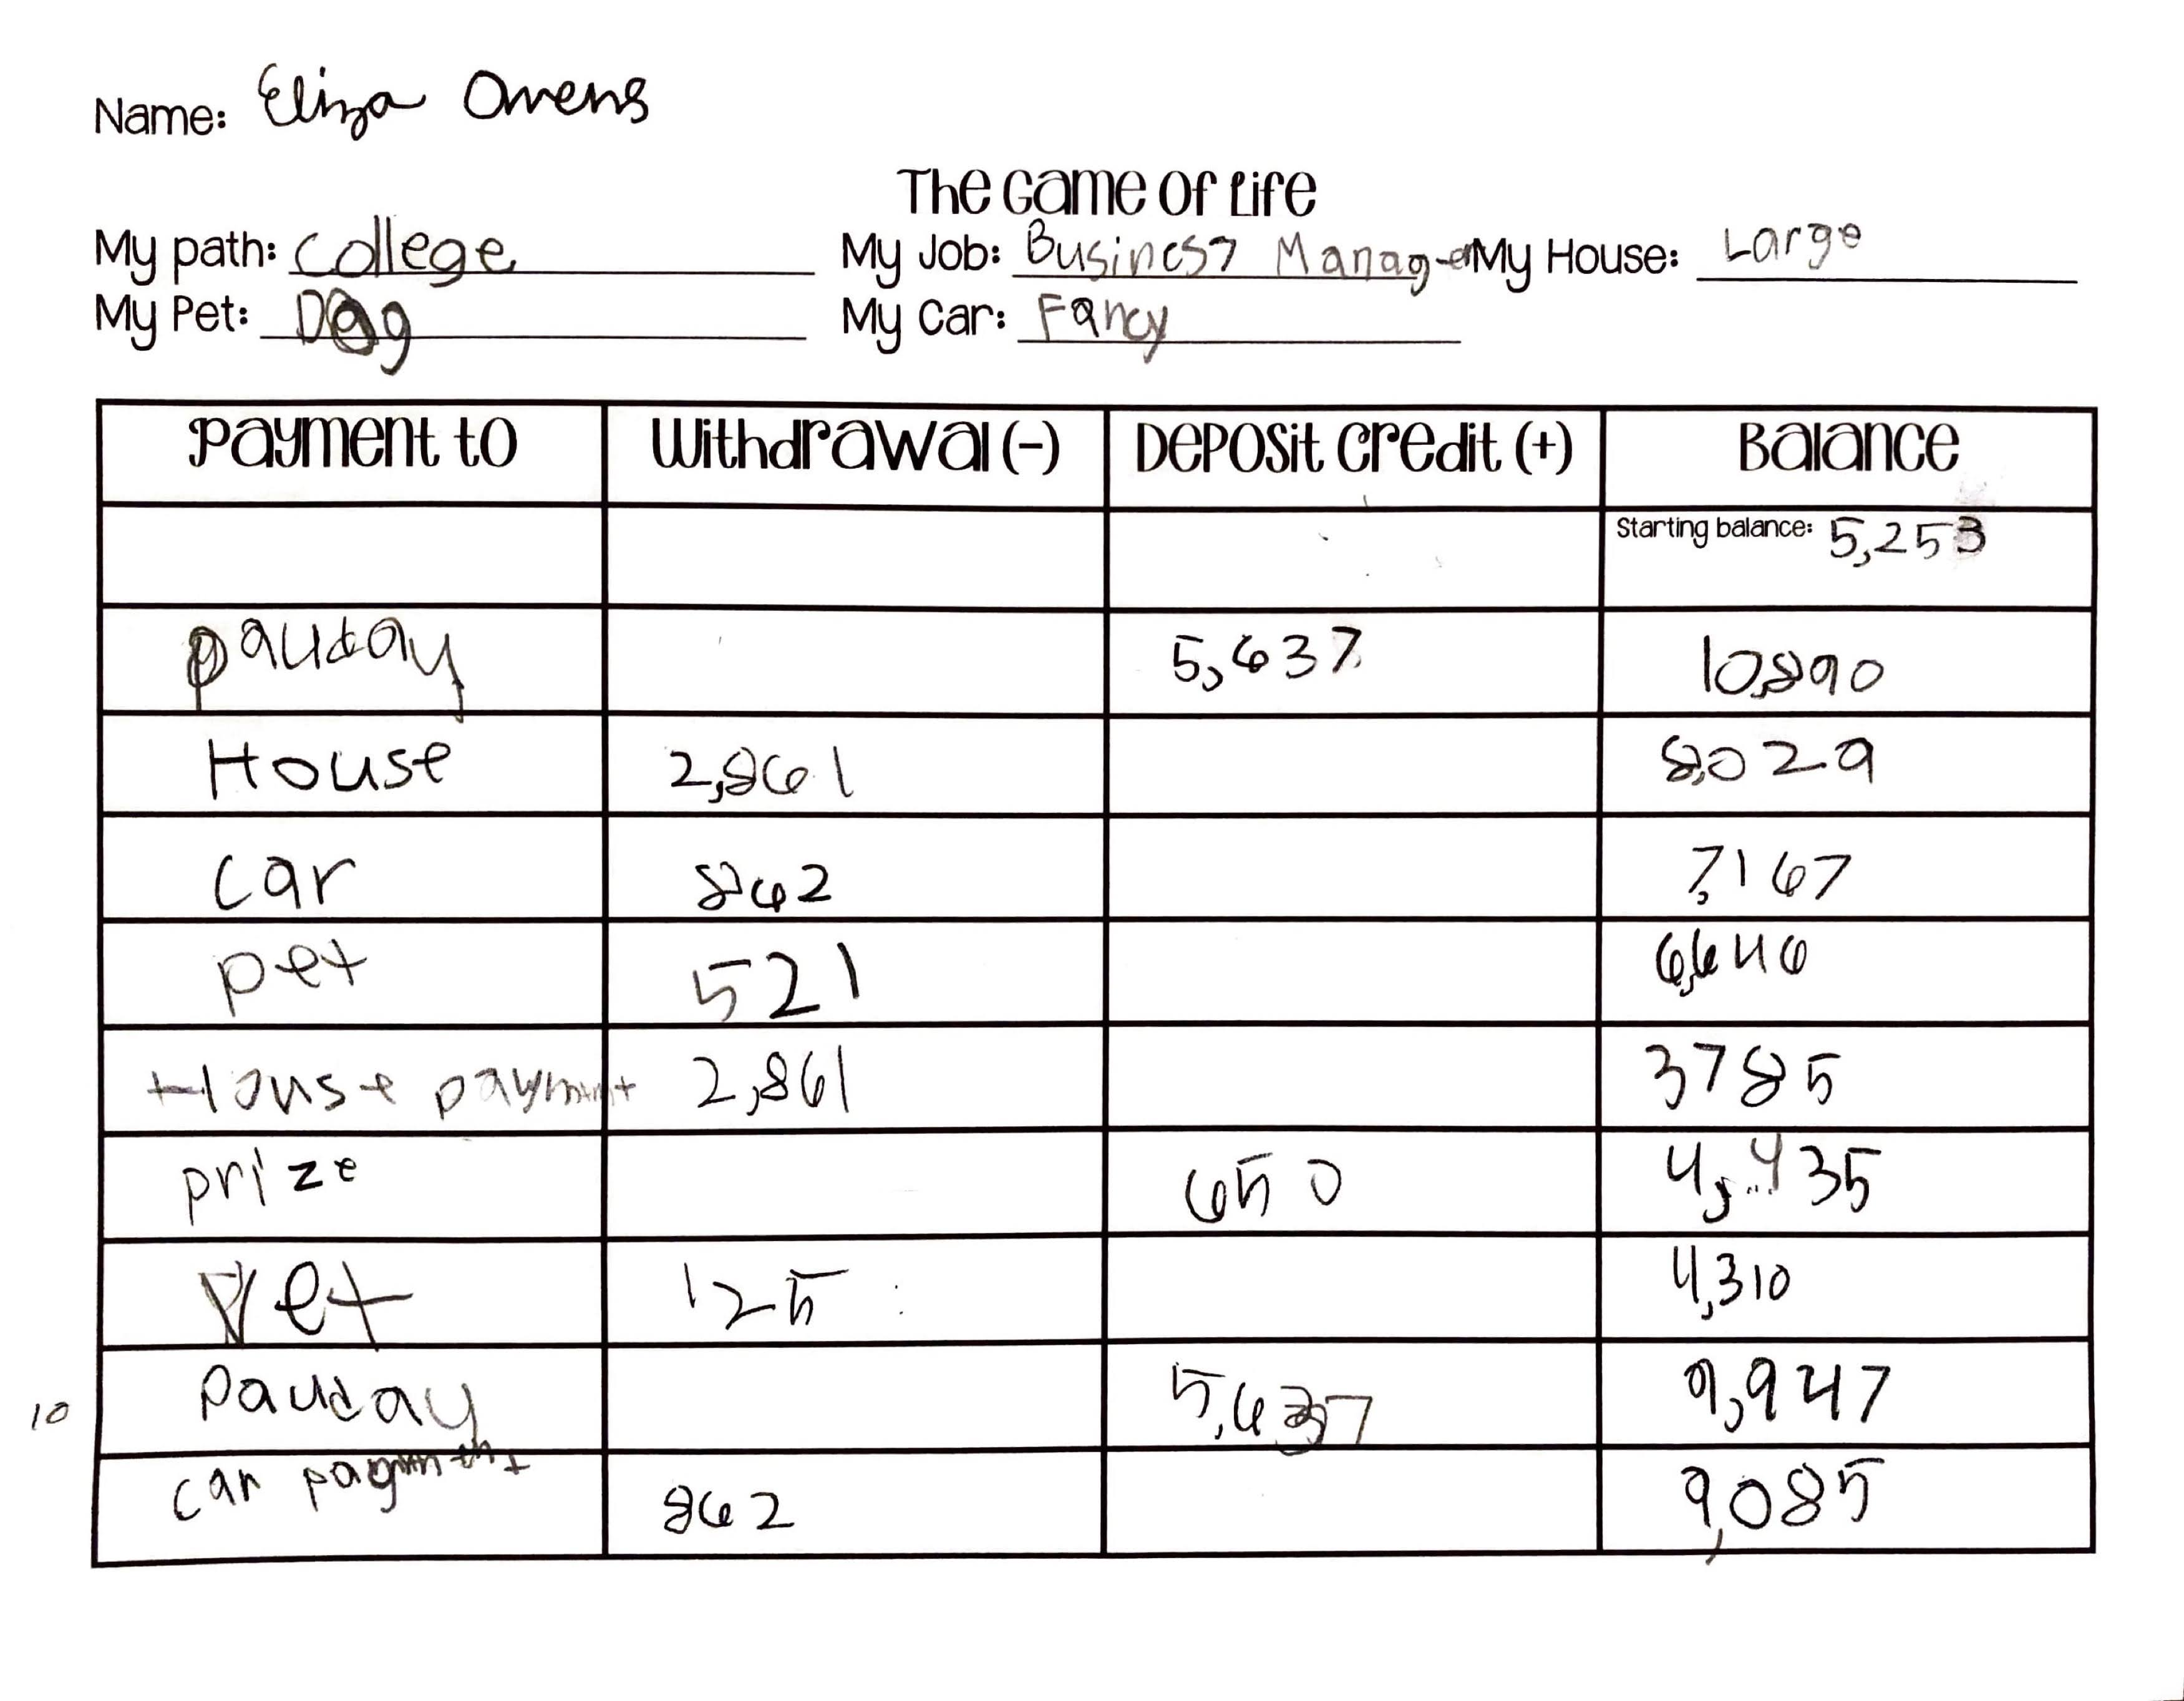 Name: Eliza Owens
The Game Of Life
My path: College My Job: Business Manager My House: Large
My Pet: Dog My Car: Fancy
Payment to Withdrawal (-) Deposit Credit (+) Balance
Starting balance: 5,253
payday 5,637 10,890
House 2,861 8,029
car 862 7,167
pet 521 6,646
House payment 2,861 3785
prize 650 4,435
vet 125 4,310
10 payday 5,637 9,947
car payment 862 9,085